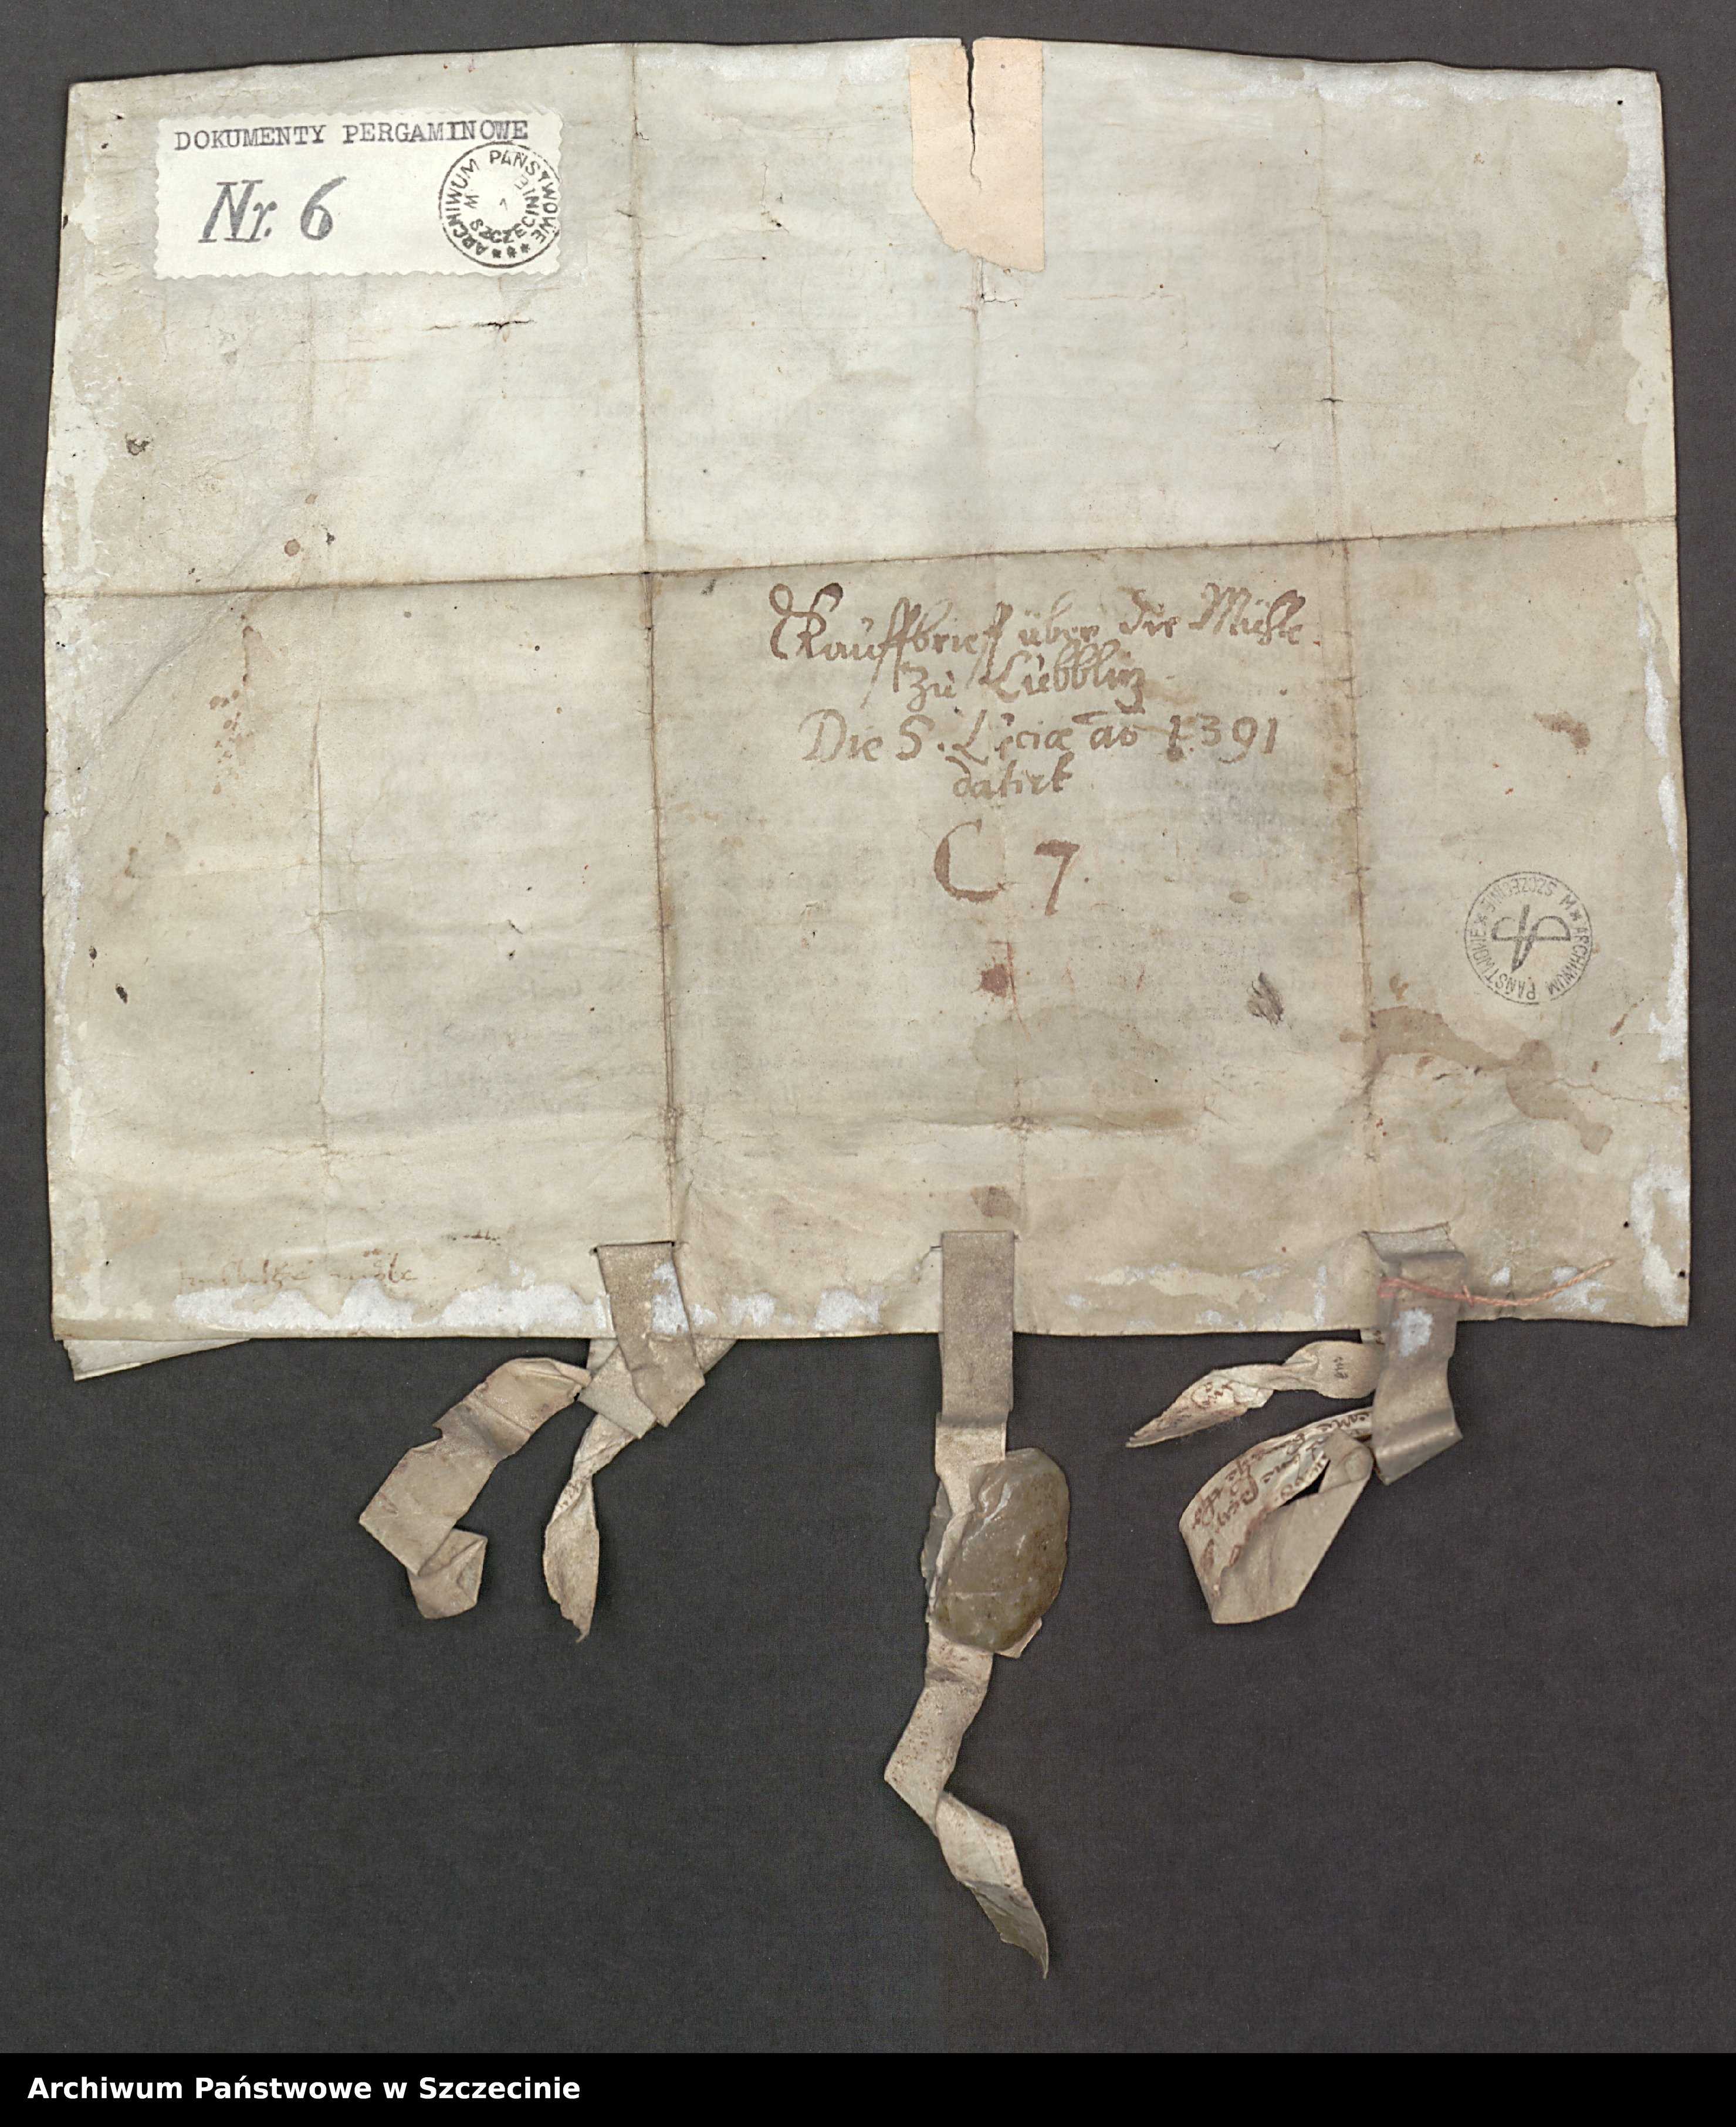 DOKUMENTY PERGAMINOWE
Nr. 6
ARCHIWUM PAŃSTWOWE W SZCZECINIE
Kauffbrieff über die Mühle
zu Lübblitz
Die S. Luciæ ao 1391
datirt
C 7.
ARCHIWUM PAŃSTWOWE W SZCZECINIE
Archiwum Państwowe w Szczecinie